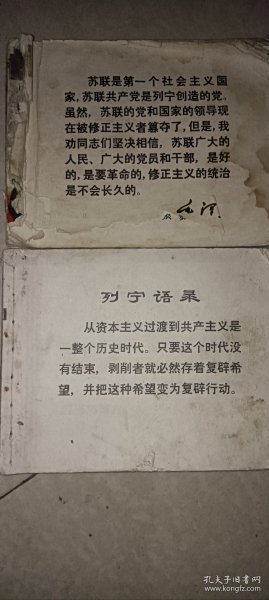 苏联是第一个社会主义国
家，苏联共产党是列宁创造的党。
虽然，苏联的党和国家的领导现
在被修正主义者篡夺了，但是，我
劝同志们坚决相信，苏联广大的
人民、广大的党员和干部，是好
的，是要革命的，修正主义的统治
是不会长久的。
列宁语录
从资本主义过渡到共产主义是
一整个历史时代。只要这个时代没
有结束，剥削者就必然存着复辟希
望，并把这种希望变为复辟行动。
孔夫子旧书网
www.kongfz.com